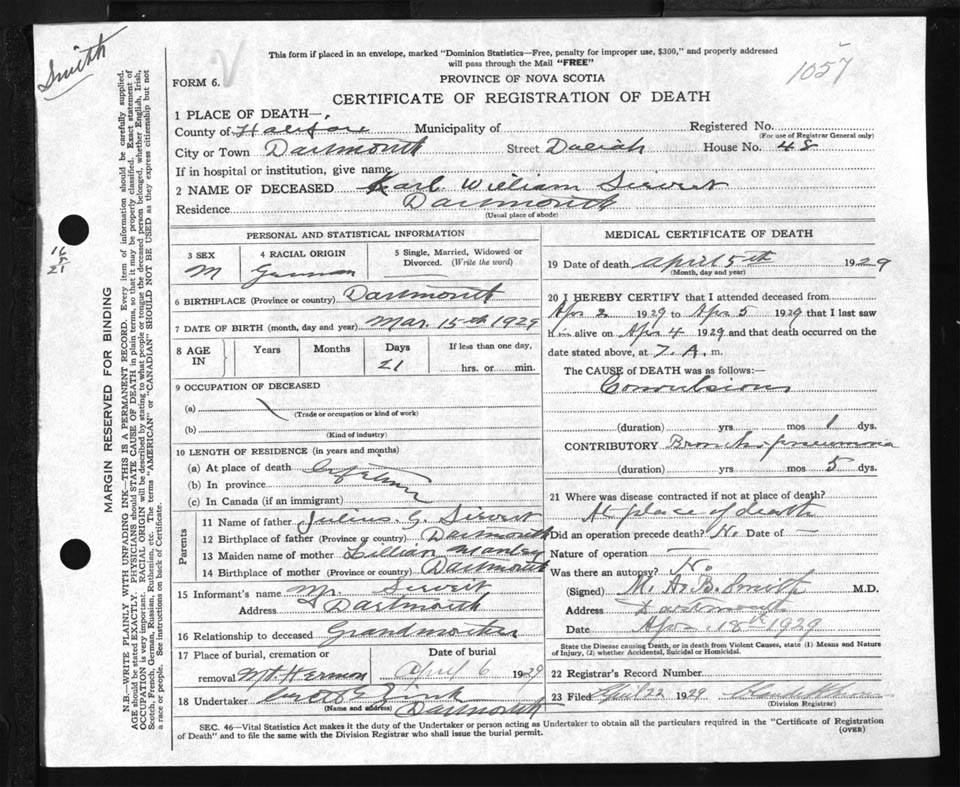 Smith
This form if placed in an envelope, marked "Dominion Statistics—Free, penalty for improper use, $300," and properly addressed
will pass through the Mail "FREE"
1057
FORM 6.
PROVINCE OF NOVA SCOTIA
CERTIFICATE OF REGISTRATION OF DEATH
1 PLACE OF DEATH—
County of Halifax Municipality of Registered No.
(For use of Registrar General only)
City or Town Dartmouth Street Dahlia House No. 48
If in hospital or institution, give name
2 NAME OF DECEASED Karl William Sievert
Residence Dartmouth
(Usual place of abode)
PERSONAL AND STATISTICAL INFORMATION
3 SEX M
4 RACIAL ORIGIN German
5 Single, Married, Widowed or Divorced. (Write the word)
6 BIRTHPLACE (Province or country) Dartmouth
7 DATE OF BIRTH (month, day and year) Mar. 15th 1929
8 AGE IN Years Months Days 21 If less than one day, hrs. or min.
9 OCCUPATION OF DECEASED
(a)
(Trade or occupation or kind of work)
(b)
(Kind of industry)
10 LENGTH OF RESIDENCE (in years and months)
(a) At place of death
(b) In province
(c) In Canada (if an immigrant)
Parents
11 Name of father Julius G. Sievert
12 Birthplace of father (Province or country) Dartmouth
13 Maiden name of mother Lillian Manley
14 Birthplace of mother (Province or country) Dartmouth
15 Informant's name Sievert
Address Dartmouth
16 Relationship to deceased Grandmother
17 Place of burial, cremation or removal Mt Hermon
Date of burial April 6 1929
18 Undertaker Zink
(Name and address) Dartmouth
MEDICAL CERTIFICATE OF DEATH
19 Date of death April 5th 1929
(Month, day and year)
20 I HEREBY CERTIFY that I attended deceased from
Apr 2 1929 to Apr 5 1929 that I last saw
him alive on Apr 4 1929 and that death occurred on
date stated above, at 7. A. m.
The CAUSE of DEATH was as follows:—
Convulsions
(duration) yrs mos 1 dys.
CONTRIBUTORY Broncho pneumonia
(duration) yrs mos 5 dys.
21 Where was disease contracted if not at place of death?
At place of death
Did an operation precede death? No. Date of —
Nature of operation —
Was there an autopsy? No.
(Signed) M. A. B. Smith M.D.
Address Dartmouth
Date Apr. 18th 1929
State the Disease causing Death, or in Death from Violent Causes, state (1) Means and Nature
of Injury, (2) whether Accidental, Suicidal or Homicidal.
22 Registrar's Record Number
23 Filed April 22 1929
(Division Registrar)
SEC. 46—Vital Statistics Act makes it the duty of the Undertaker or person acting as Undertaker to obtain all the particulars required in the "Certificate of Registration
of Death" and to file the same with the Division Registrar who shall issue the burial permit.
(OVER)
MARGIN RESERVED FOR BINDING
N.B.—WRITE PLAINLY WITH UNFADING INK—THIS IS A PERMANENT RECORD. Every item of information should be carefully supplied.
AGE should be stated EXACTLY. PHYSICIANS should STATE CAUSE OF DEATH in plain terms, so that it may be properly classified. Exact statement of
OCCUPATION is very important. RACIAL ORIGIN will be described by stating to what people or tongue the deceased person belonged, whether English, Irish,
Scotch, French, German, Russian, Ruthenian, etc. The terms "AMERICAN" or "CANADIAN" SHOULD NOT BE USED as they express citizenship but not
a race or people. See instructions on back of Certificate.
16
5
21